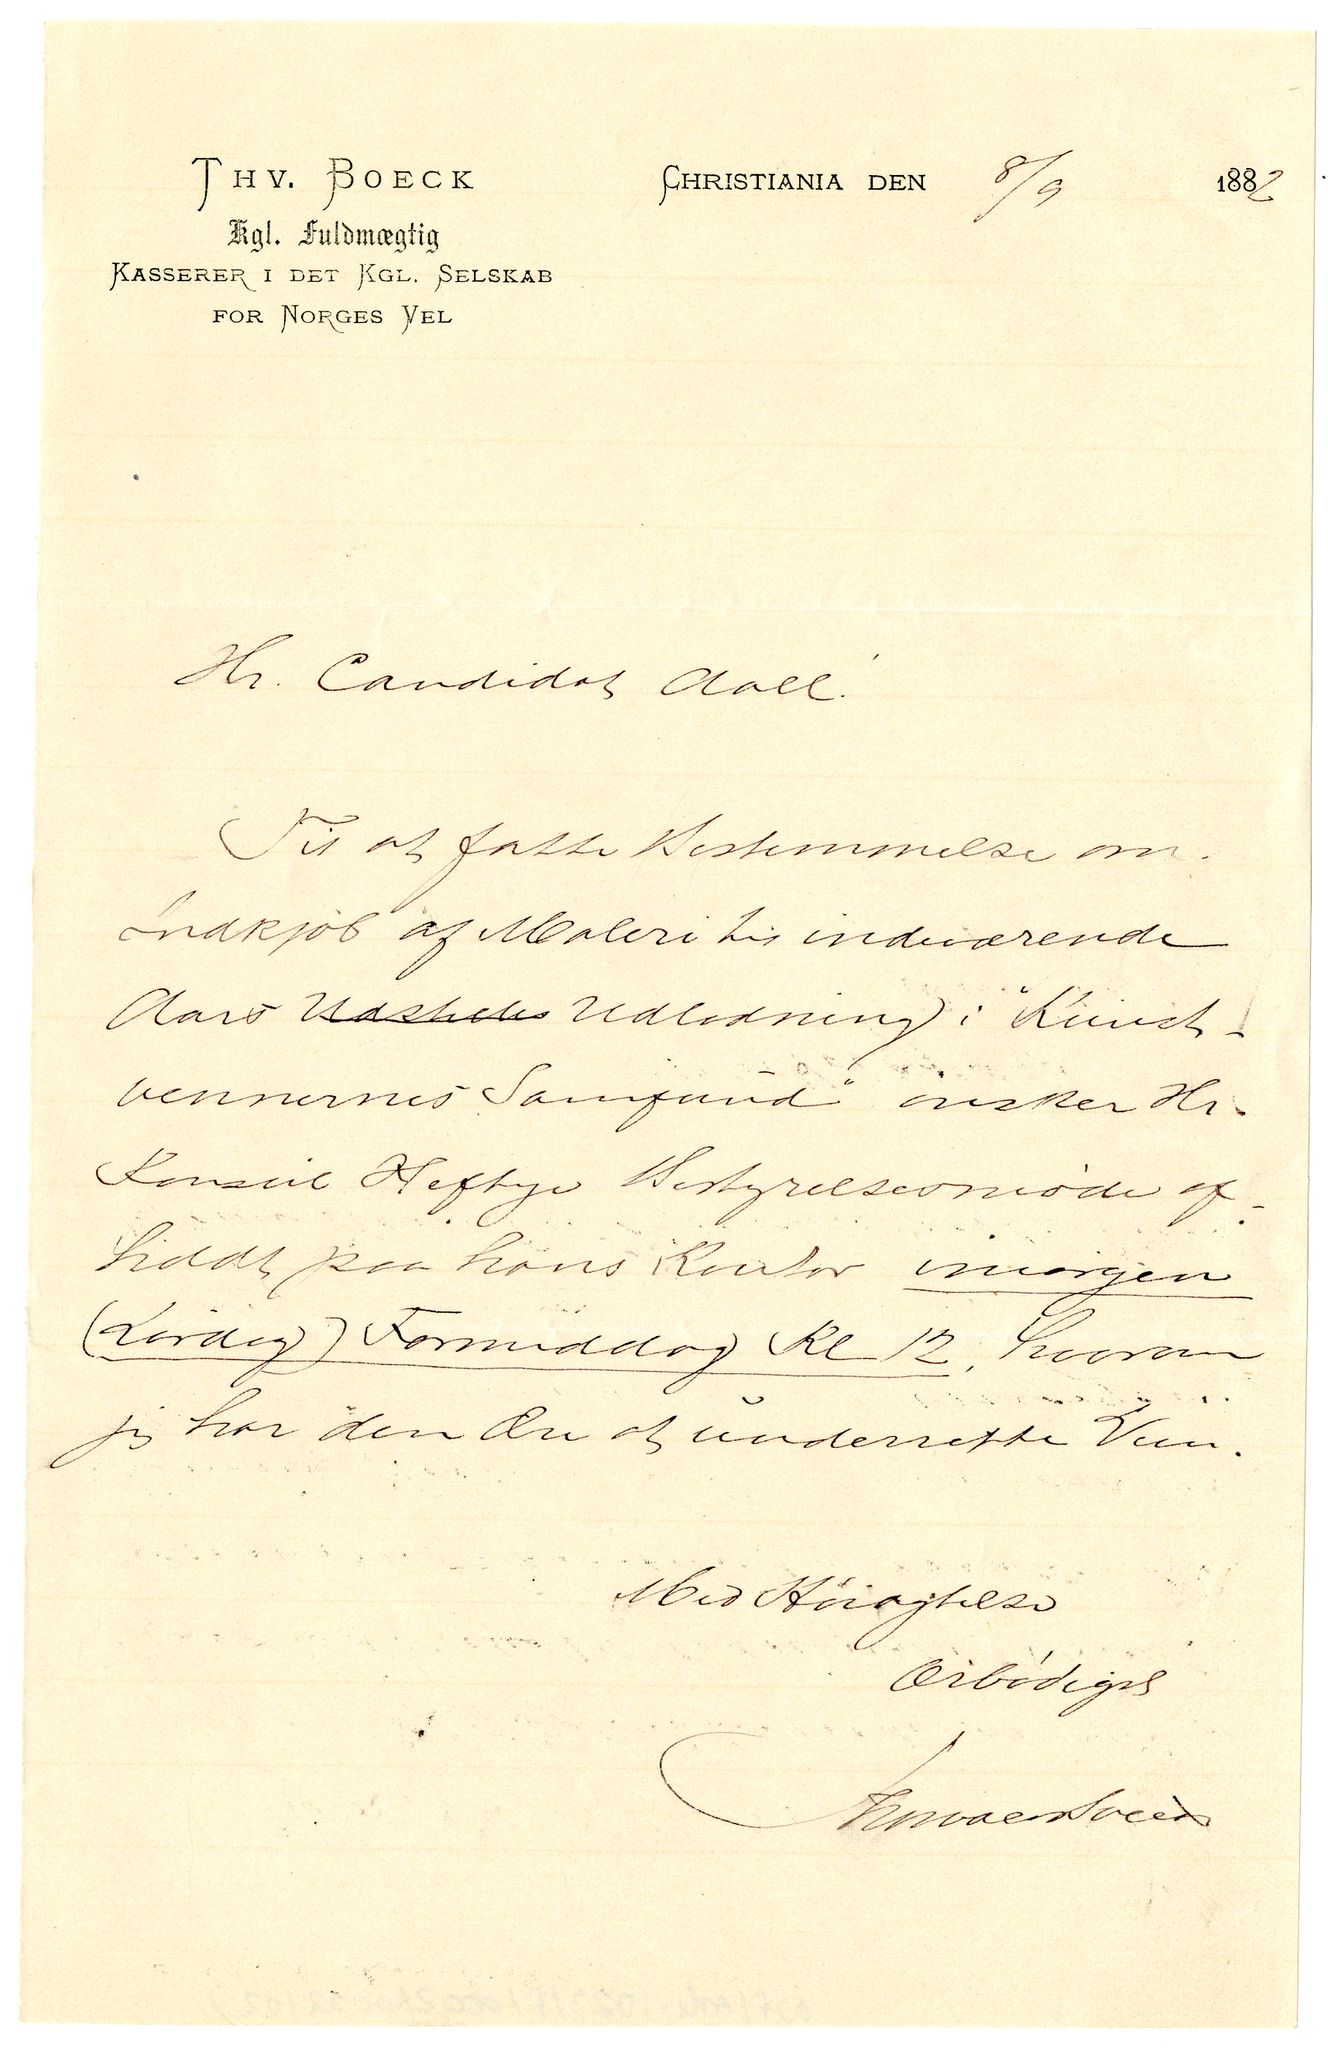 THV. BOECK
Kgl. Fuldmægtig
KASSERER I DET KGL. SELSKAB
FOR NORGES VEL
CHRISTIANIA DEN 8/9 1882
Hr. Candidat Aall!
Til at fatte Bestemmelse om
Indkjöb af Maleri til indeværende
Aars Udlodning i "Kunst-
vennernes Samfund" önsker Hr.
Konsul Heftye Bestyrelsesmöde af-
holdt paa hans Kontor imorgen
(Lördag) Formiddag Kl 12, hvorom
jeg har den Ære at underrette Dem.
Med Höiagtelse
Ærbödigst
Thorvald Boeck